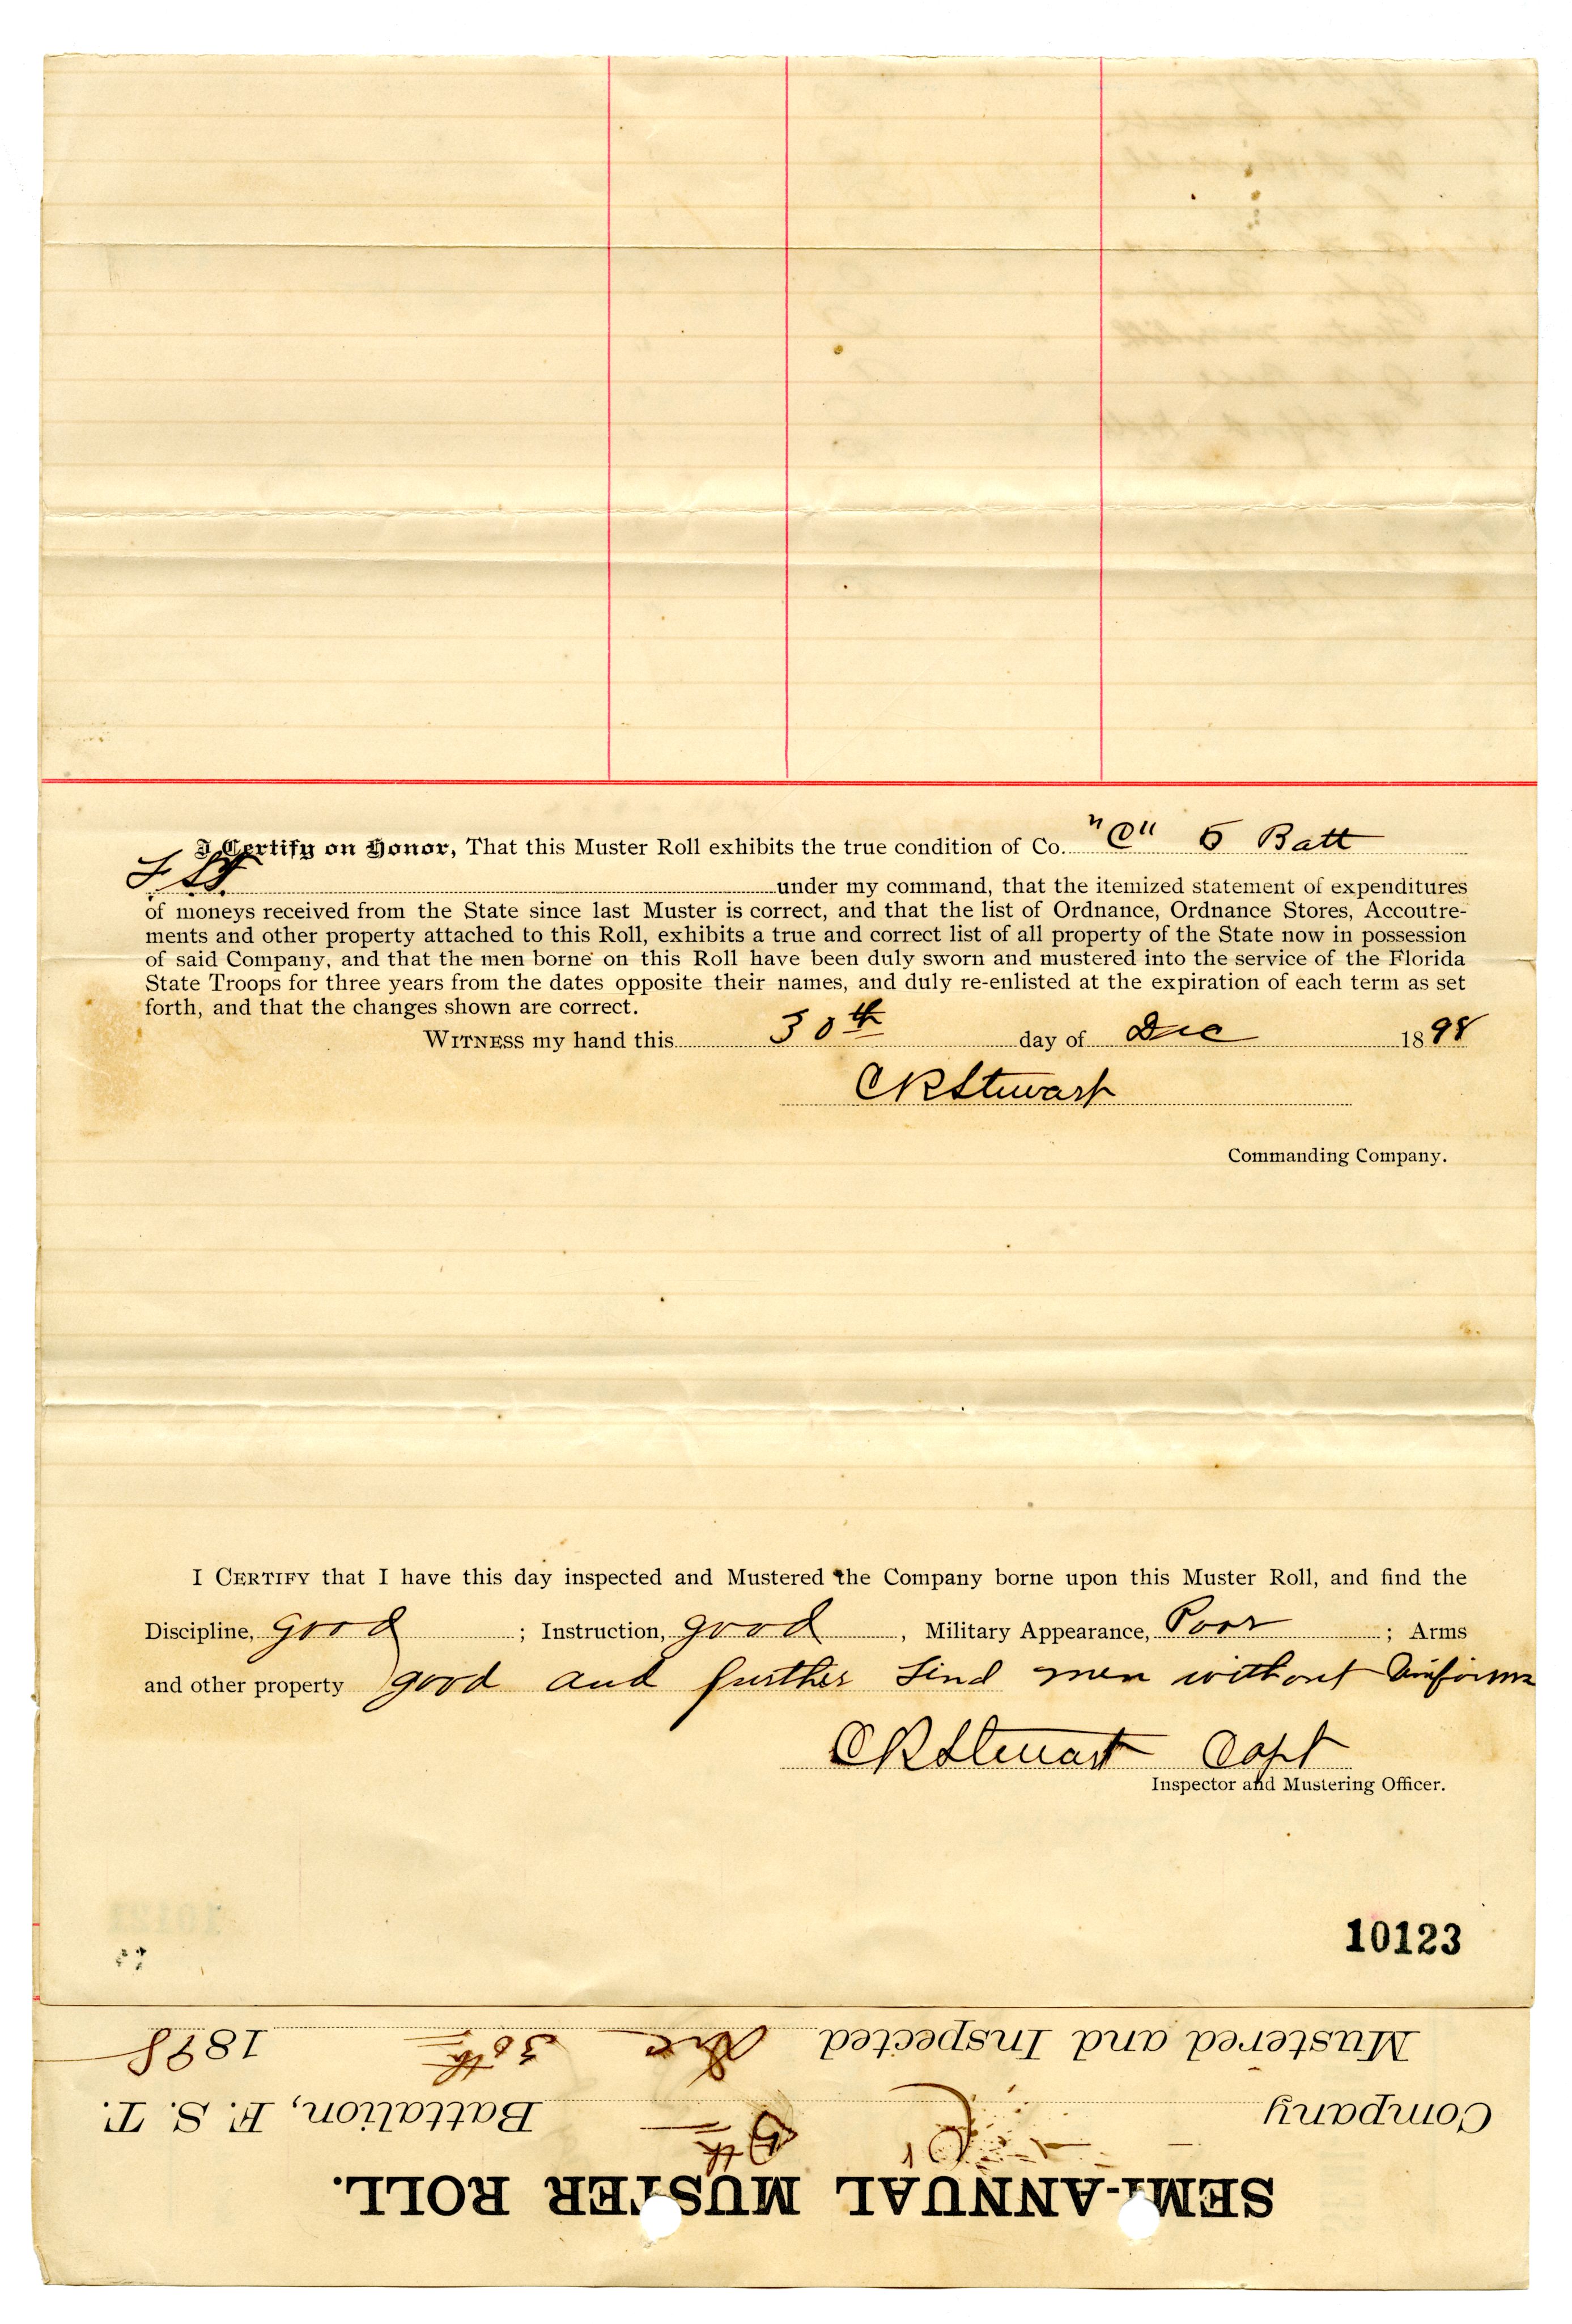 I Certify on Honor, That this Muster Roll exhibits the true condition of Co. "C" 5 Batt
F S T under my command, that the itemized statement of expenditures
of moneys received from the State since last Muster is correct, and that the list of Ordnance, Ordnance Stores, Accoutre-
ments and other property attached to this Roll, exhibits a true and correct list of all property of the State now in possession
of said Company, and that the men borne on this Roll have been duly sworn and mustered into the service of the Florida
State Troops for three years from the dates opposite their names, and duly re-enlisted at the expiration of each term as set
forth, and that the changes shown are correct.
WITNESS my hand this 30th day of Dec 1898
C R Stewart
Commanding Company.
I CERTIFY that I have this day inspected and Mustered the Company borne upon this Muster Roll, and find the
Discipline, good ; Instruction, good , Military Appearance, Poor ; Arms
and other property good and further find men without Uniforms
C R Stewart Capt
Inspector and Mustering Officer.
10123
SEMI-ANNUAL MUSTER ROLL.
Company C 5th Battalion, F. S. T.
Mustered and Inspected Dec 30th 1898